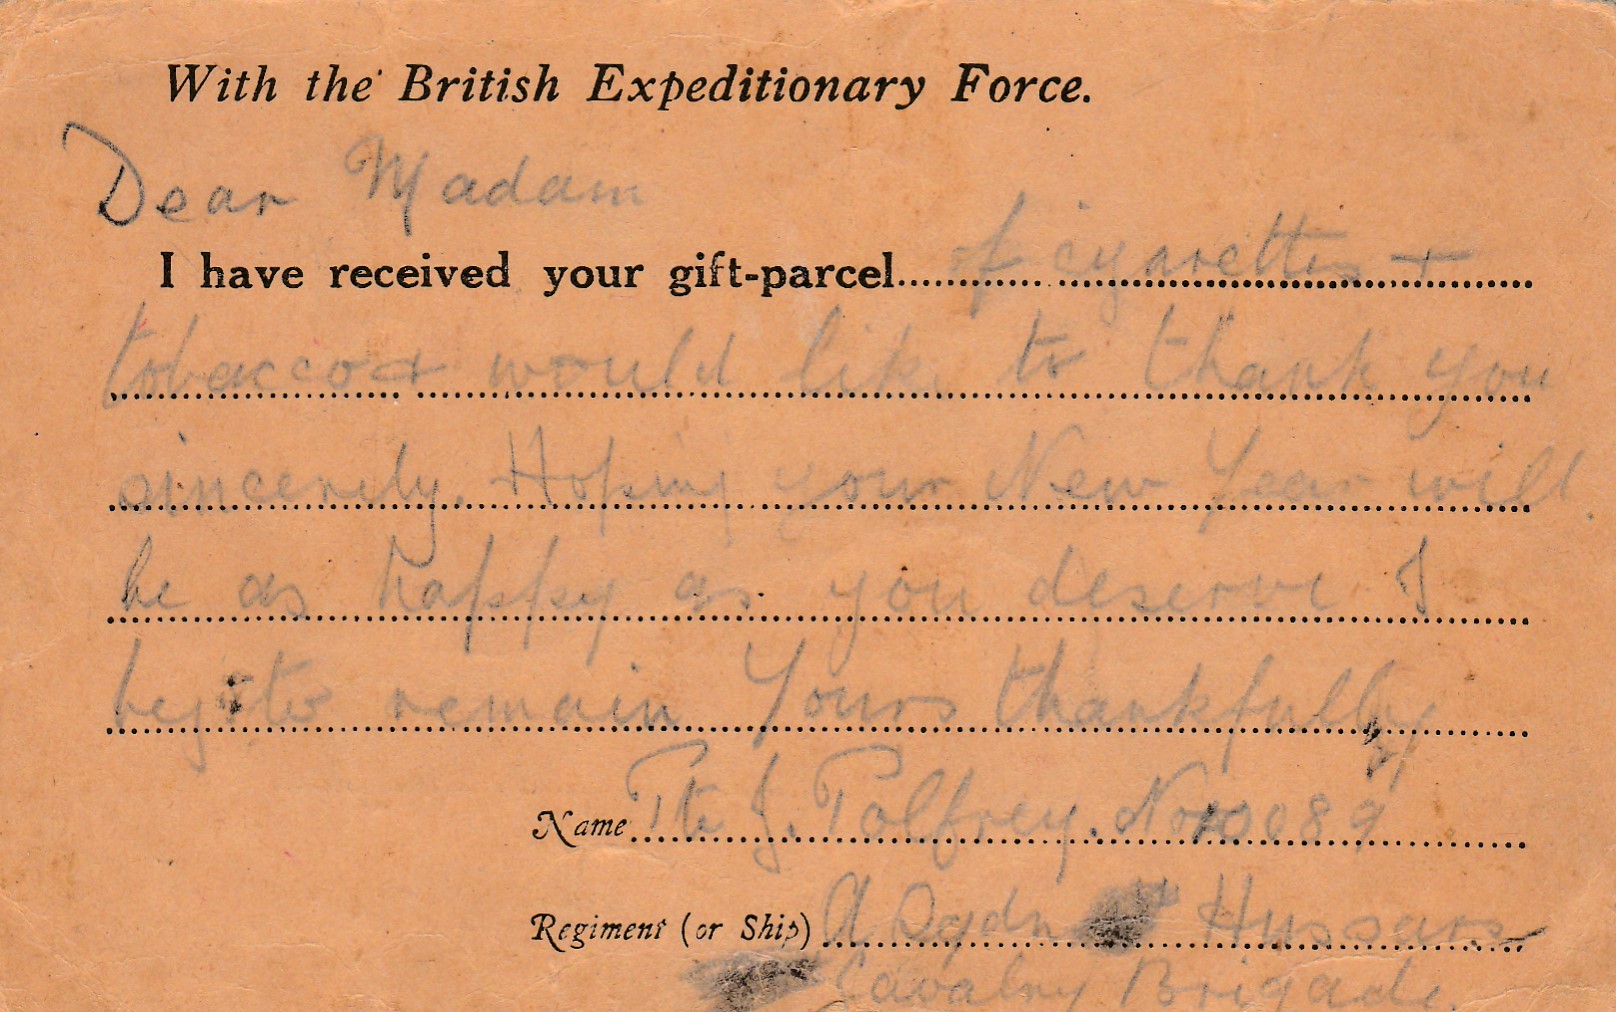 With the British Expeditionary Force.
Dear Madam
I have received your gift-parcel of cigarettes +
tobacco + would like to thank you
sincerely. Hoping your New Year will
be as happy as you deserve I
beg to remain Yours thankfully
Name Pte J. Palfrey. No 10089
Regiment (or Ship) A Sqdn Hussars
Cavalry Brigade.